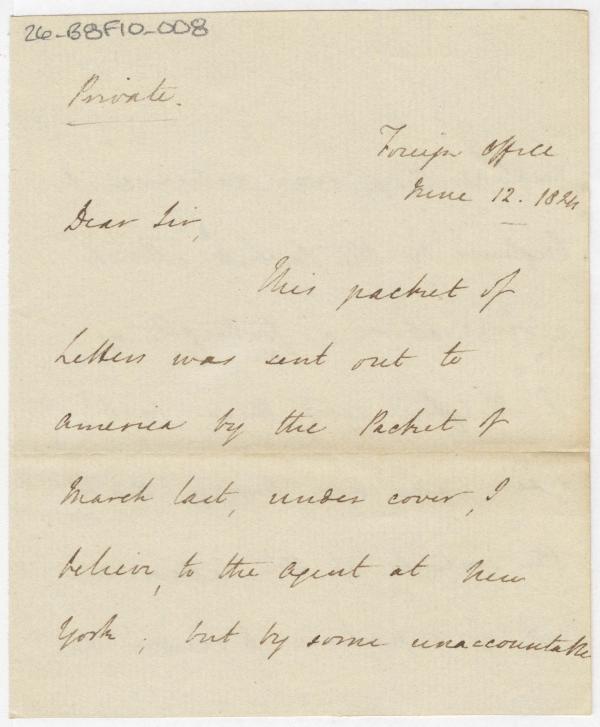 26-B8F10-008
Private.
Foreign Office
June 12. 1824
Dear Sir,
This packet of
Letters was sent out to
America by the Packet of
March last, under cover, I
believe, to the Agent at New
York; but by some unaccountable